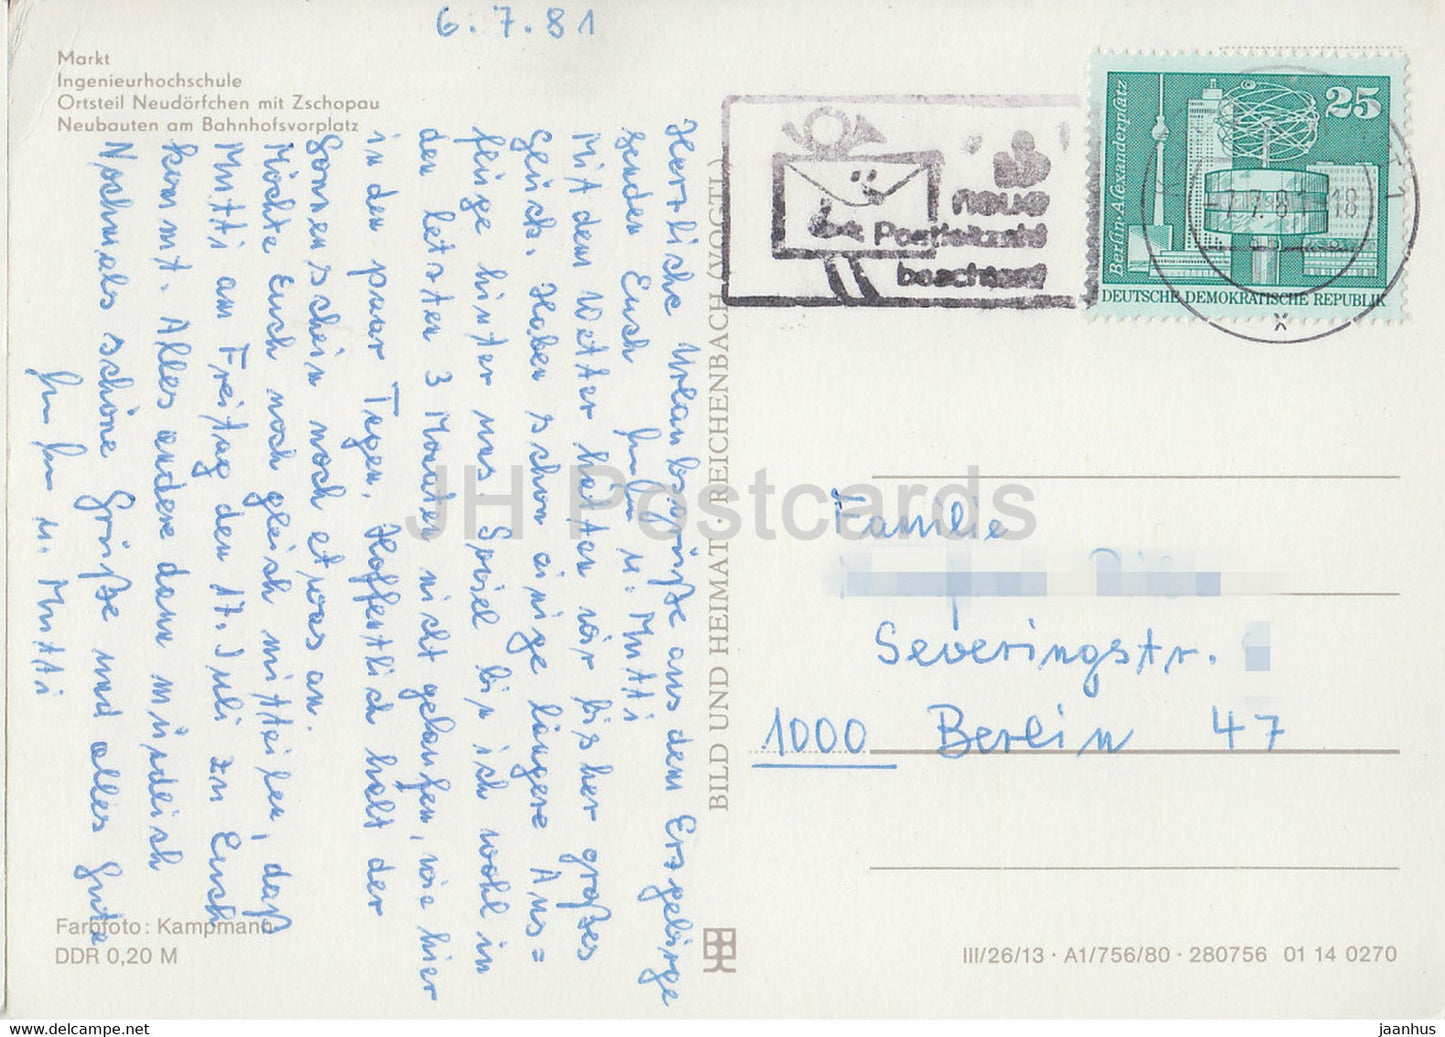 6.7.81
Markt
Ingenieurhochschule
Ortsteil Neudörfchen mit Zschopau
Neubauten am Bahnhofsvorplatz
Herzliche Urlaubsgrüße aus dem Erzgebirge
senden Euch u. Mutti
Mit dem Wetter hatten wir bisher großes
Glück. Haben schon einige längere Aus=
flüge hinter uns. Soviel bin ich wohl in
den letzten 3 Monaten nicht gelaufen, wie hier
in den paar Tagen. Hoffentlich hält der
Sonnenschein noch etwas an.
Möchte Euch noch gleich mitteilen, daß
Mutti am Freitag den 17. Juli zu Euch
kommt. Alles andere dann mündlich
Nochmals schöne Grüße und alles Gute
u. Mutti
Farbfoto: Kampmann
DDR 0,20 M
BILD UND HEIMAT · REICHENBACH (VOGTL)
neue
Postleitzahl
beachten!
Berlin-Alexanderplatz
25
DEUTSCHE DEMOKRATISCHE REPUBLIK
-7.7.81-18
JH Postcards
Familie
Severingstr.
1000 Berlin 47
III/26/13 · A1/756/80 · 280756 01 14 0270
www.delcampe.net
jaanhus